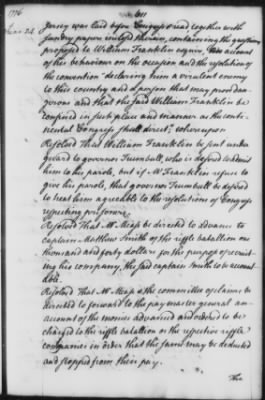 1776
June 24
Jersey was laid before Congress & read together with
sundry papers inclosed therein, containing the questions
proposed to William Franklin esquire, an account
of his behaviour on the occasion and the resolution of
the convention declaring him a virulent enemy
to this country and a person that may prove dan-
gerous and that the said William Franklin be
confined in such place and manner as the conti-
nental Congress shall direct; whereupon
Resolved That William Franklin be sent under
guard to governor Trumbull, who is desired to admit
him to his parole, but if Mr Franklin refuse to
give his parole, that governor Trumbull be desired
to treat him agreeable to the resolutions of Congress
respecting prisoners.
Resolved That Mr Mease be directed to advance to
captain Matthew Smith of the riffle batallion one
thousand and forty dollars for the purpose of recruit-
ing his company, the said captain Smith to be account-
able.
Resolved That Mr Mease & the committee of claims be
directed to forward to the pay master general an
account of the monies advanced and ordered to be
charged to the riffle batallion or the respective riffle
companies in order that the same may be deducted
and stopped from their pay.
The